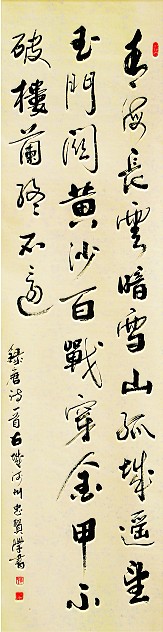 青海長雲暗雪山孤城遙望
玉門關黃沙百戰穿金甲不
破樓蘭終不還
錄唐詩一首古城河州忠賢學書